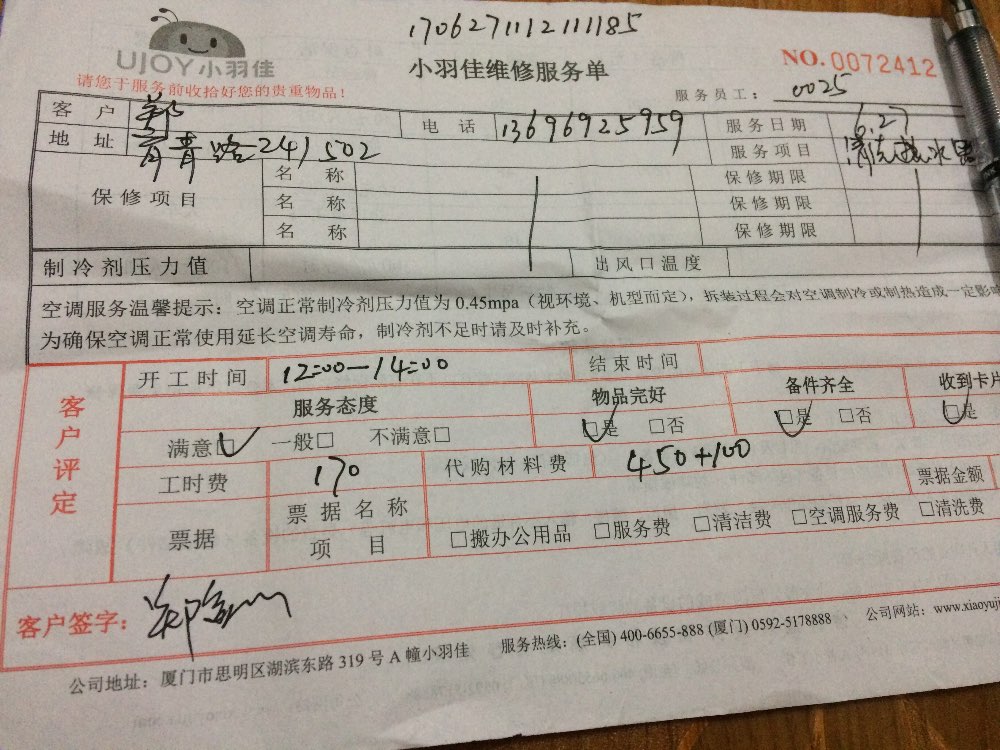 1706271112111185
UJOY小羽佳
小羽佳维修服务单
NO. 0072412
请您于服务前收拾好您的贵重物品！
服务员工： 0025
客户 郑 电话 13696925959 服务日期 6.27
地址 青路241 502 服务项目 清洗热水器
保修项目 名称 保修期限
名称 保修期限
名称 保修期限
制冷剂压力值 出风口温度
空调服务温馨提示：空调正常制冷剂压力值为 0.45mpa（视环境、机型而定），拆装过程会对空调制冷或制热造成一定影响
为确保空调正常使用延长空调寿命，制冷剂不足时请及时补充。
客户评定
开工时间 12:00—14:00 结束时间
服务态度 物品完好 备件齐全 收到卡片
满意☑ 一般□ 不满意□ ☑是 □否 ☑是 □否 ☑是
工时费 170 代购材料费 450+100
票据 票据名称 票据金额
项目 □搬办公用品 □服务费 □清洁费 □空调服务费 □清洗费
客户签字： 郑
公司地址：厦门市思明区湖滨东路 319 号 A 幢小羽佳 服务热线：(全国) 400-6655-888 (厦门) 0592-5178888 、 公司网站：www.xiaoyuji